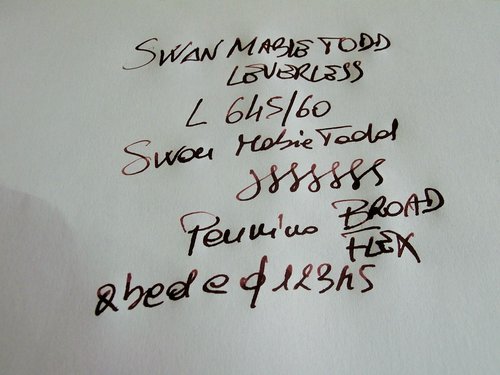 SWAN MABIE TODD
LEVERLESS
L 645/60
Swan Mabie Todd
JSSSSSSS
Pennino BROAD
FLEX
abcd e d 12345